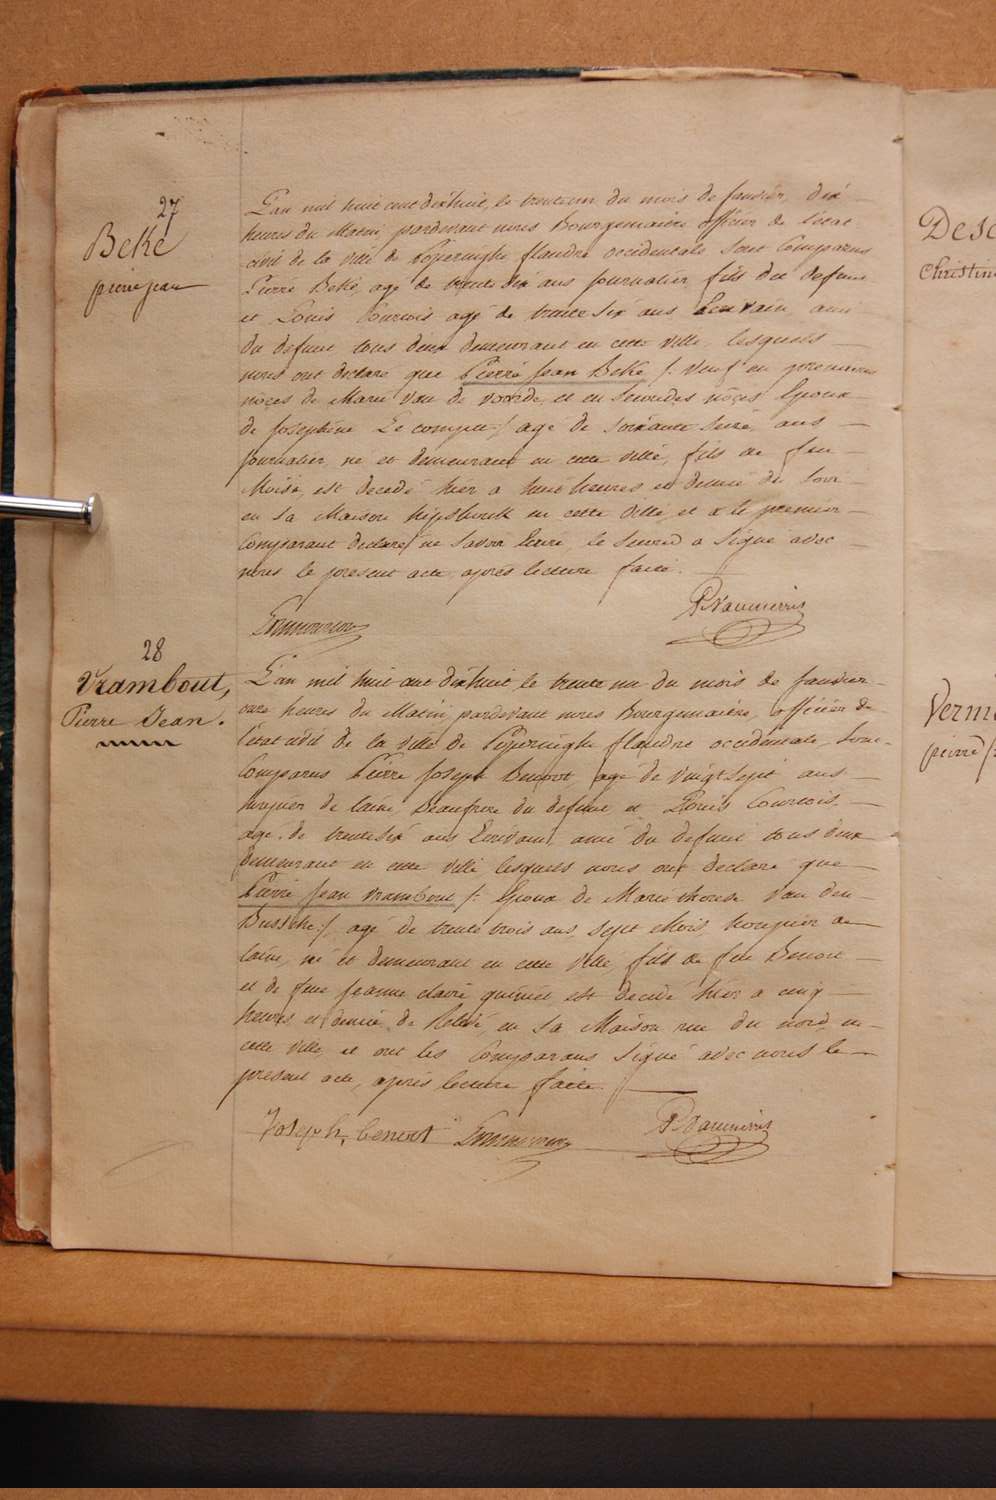 27
Beke
pierre jean
L'an mil huit cent dixhuit, le trenteun du mois de Janvier, dix
heures du Matin pardevant nous Bourgemaitre officier de l'etat
civil de la ville de Poperinghe flandre occidentale sont Comparus
Pierre Beke, agé de trente six ans journalier, fils du defunt
et Louis Courtois agé de trente six ans Ecrivain, ami
du defunt tous deux demeurant en cette ville, lesquels
nous ont declaré que Pierre Jean Beke /: Veuf en premieres
noces de Marie Van de voorde, et en secondes noces Epoux
de Josephine Le compte :/ agé de soixante seize ans
journalier, né et demeurant en cette ville, fils de feu
Moise, est decedé hier a huit heures et demie du soir
en sa Maison en cette ville, et a le premier
Comparant declaré ne savoir Ecrire, le second a signé avec
nous le present acte, après lecture faite.
P. Vanmerris
28
Vrambout,
Pierre Jean.
L'an mil huit cent dixhuit, le trente un du mois de Janvier
onze heures du Matin, pardevant nous Bourgemaitre, officier de
l'etat civil de la ville de Poperinghe flandre occidentale, sont
Comparus Pierre Joseph Benoot agé de vingt sept ans
de laine Beaufrere du defunt et Louis Courtois,
agé de trente six ans Ecrivain, ami du defunt tous deux
demeurant en cette ville lesquels nous ont declaré que
Pierre Jean Vrambout /: Epoux de Marie therese Van den
Bussche :/ agé de trente trois ans, sept Mois, de
laine, né et demeurant en cette ville, fils de feu Benoit
et de feue Jeanne claire est decedé hier a cinq
heures et demie de Relevé, en sa Maison rue du nord, en
cette ville, et ont les Comparans signé avec nous le
present acte, après lecture faite.
Joseph, benoot P. Vanmerris
Desc
Christin
Verm
pierre